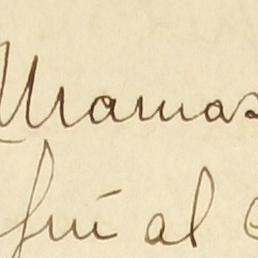 Mamas
fui al